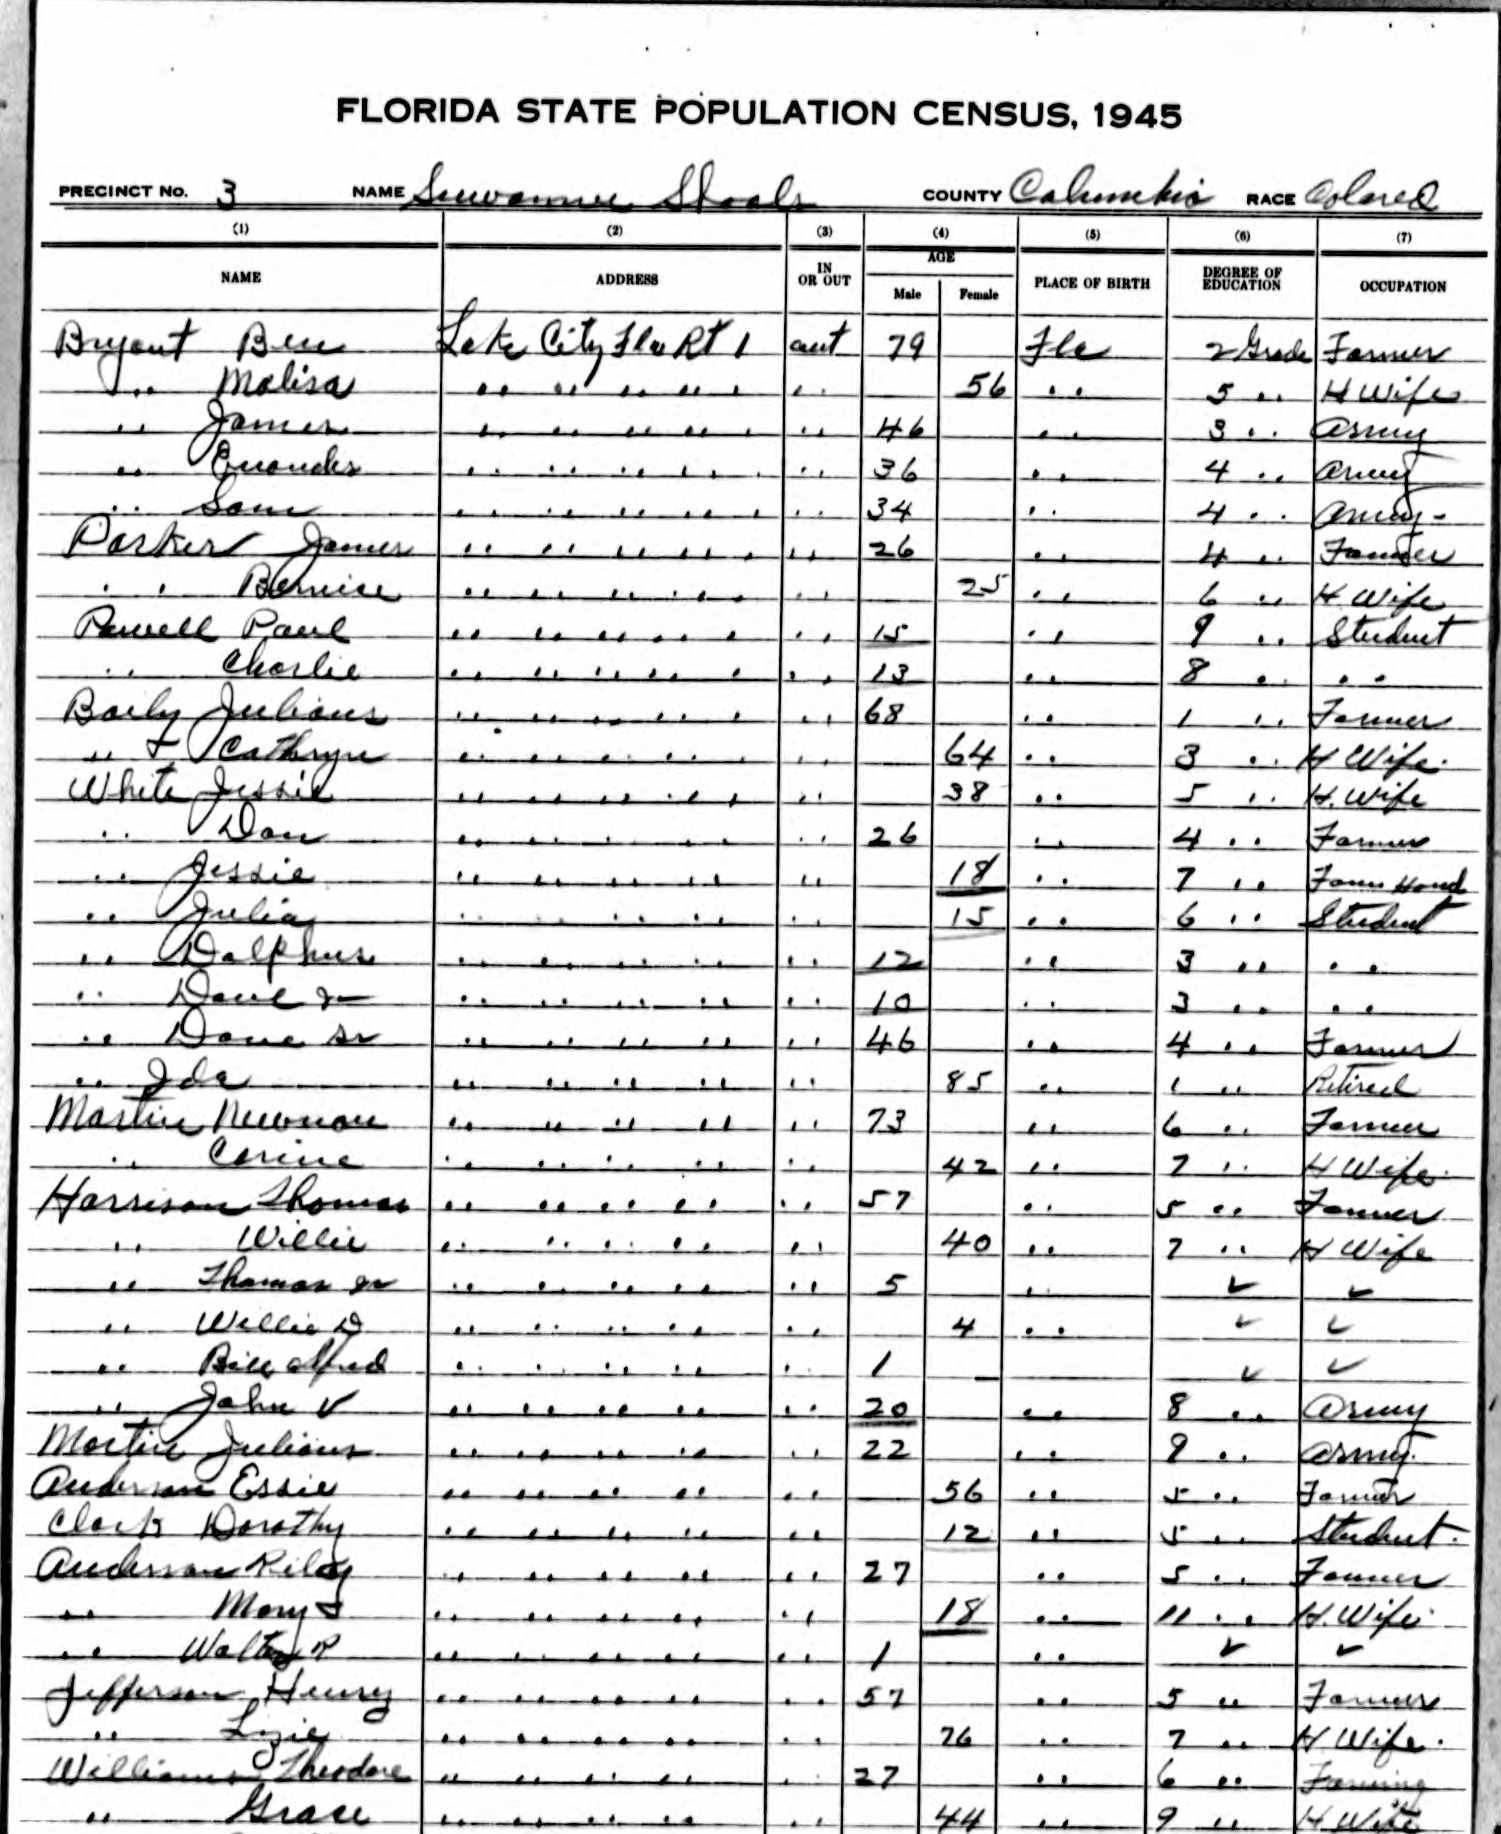 FLORIDA STATE POPULATION CENSUS, 1945
PRECINCT No. 3 NAME Suwannee Shoals COUNTY Columbia RACE Colored
(1) (2) (3) (4) (5) (6) (7)
NAME ADDRESS IN OR OUT AGE Male Female PLACE OF BIRTH DEGREE OF EDUCATION OCCUPATION
Bryant Ben Lake City Fla Rt 1 out 79 Fla 2 Grade Farmer
" Malisa " " " " " " 56 " 5 " H Wife
" James " " " " " " 46 " 3 " Army
" " " " " " " 36 " 4 " Army
" Sam " " " " " " 34 " 4 " Army
Parker James " " " " " " 26 " 4 " Farmer
" Bernice " " " " " " 25 " 6 " H. Wife
Powell Paul " " " " " " 15 " 9 " Student
" Charlie " " " " " " 13 " 8 " "
Baily Julious " " " " " " 68 " 1 " Farmer
" Cathryn " " " " " " 64 " 3 " H Wife
White Jessie " " " " " " 38 " 5 " H. Wife
" Dan " " " " " " 26 " 4 " Farmer
" Jessie " " " " " " 18 " 7 " Farm Hand
" Julia " " " " " 15 " 6 " Student
" Dalphus " " " " " 12 " 3 " "
" Dave Jr " " " " " 10 " 3 " "
" Dave Sr " " " " " 46 " 4 " Farmer
" Ida " " " " " 85 " 1 " Retired
Martin Newman " " " " " 73 " 6 " Farmer
" Corine " " " " " 42 " 7 " H Wife
Harrison Thomas " " " " " 57 " 5 " Farmer
" Willie " " " " " 40 " 7 " H Wife
" Thomas Jr " " " " " 5 " ✓ ✓
" Willie D " " " " " 4 " ✓ ✓
" Bill Alfred " " " " " 1 ✓ ✓
" John V " " " " " 20 " 8 " Army
Martin Julious " " " " " 22 " 9 " Army
Anderson Essie " " " " " 56 " 5 " Farmer
Clark Dorothy " " " " " 12 " 5 " Student
Anderson Riley " " " " " 27 " 5 " Farmer
" Mary " " " " " 18 " 11 " H. Wife
" Walter R " " " " " 1 " ✓ ✓
Jefferson Henry " " " " " 57 " 5 " Farmer
" Lizie " " " " " 76 " 7 " H Wife
Williams Theodore " " " " " 27 " 6 " Farming
" Grace " " " " " 44 " 9 " H Wife